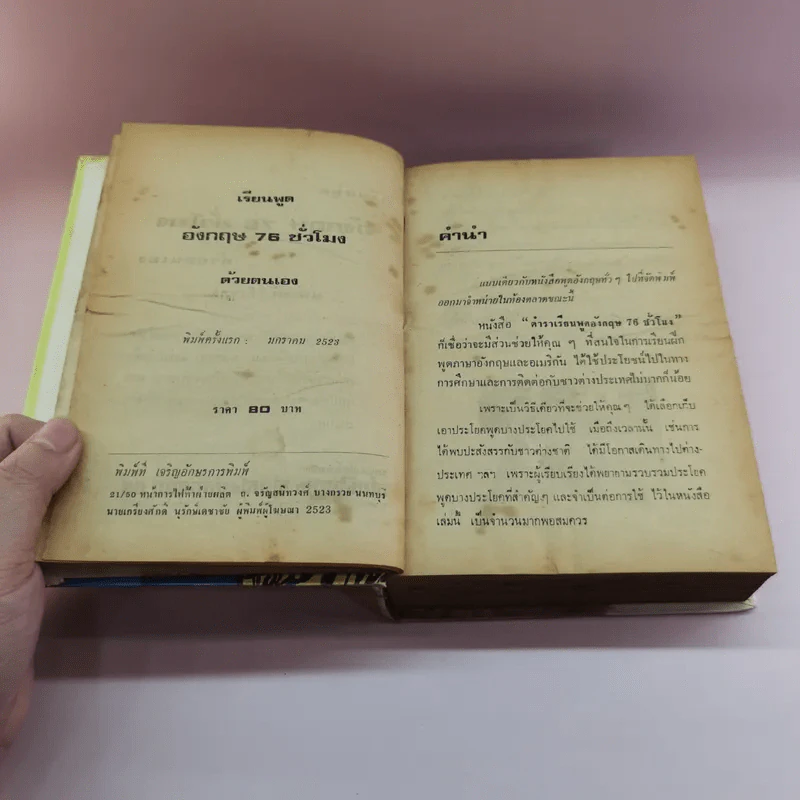 เรียนพูด
อังกฤษ 76 ชั่วโมง
ด้วยตนเอง
พิมพ์ครั้งแรก : มกราคม 2523
ราคา 80 บาท
พิมพ์ที่ เจริญอักษรการพิมพ์
21/50 หน้าการไฟฟ้าฝ่ายผลิต ถ. จรัญสนิทวงศ์ บางกรวย นนทบุรี
นายเกรียงศักดิ์ นุรักษ์เดชาชัย ผู้พิมพ์ผู้โฆษณา 2523
คำนำ
แบบเดียวกับหนังสือพูดอังกฤษทั่ว ๆ ไปที่จัดพิมพ์
ออกมาจำหน่ายในท้องตลาดขณะนี้
หนังสือ “ตำราเรียนพูดอังกฤษ 76 ชั่วโมง”
ก็เชื่อว่าจะมีส่วนช่วยให้คุณ ๆ ที่สนใจในการเรียนฝึก
พูดภาษาอังกฤษและอเมริกัน ได้ใช้ประโยชน์ไปในทาง
การศึกษาและการติดต่อกับชาวต่างประเทศไม่มากก็น้อย
เพราะเป็นวิธีเดียวที่จะช่วยให้คุณ ๆ ได้เลือกเก็บ
เอาประโยคพูดบางประโยคไปใช้ เมื่อถึงเวลานั้น เช่นการ
ได้พบปะสังสรรกับชาวต่างชาติ ได้มีโอกาสเดินทางไปต่าง-
ประเทศ ฯลฯ เพราะผู้เรียบเรียงได้พยายามรวบรวมประโยค
พูดบางประโยคที่สำคัญๆ และจำเป็นต่อการใช้ ไว้ในหนังสือ
เล่มนี้ เป็นจำนวนมากพอสมควร